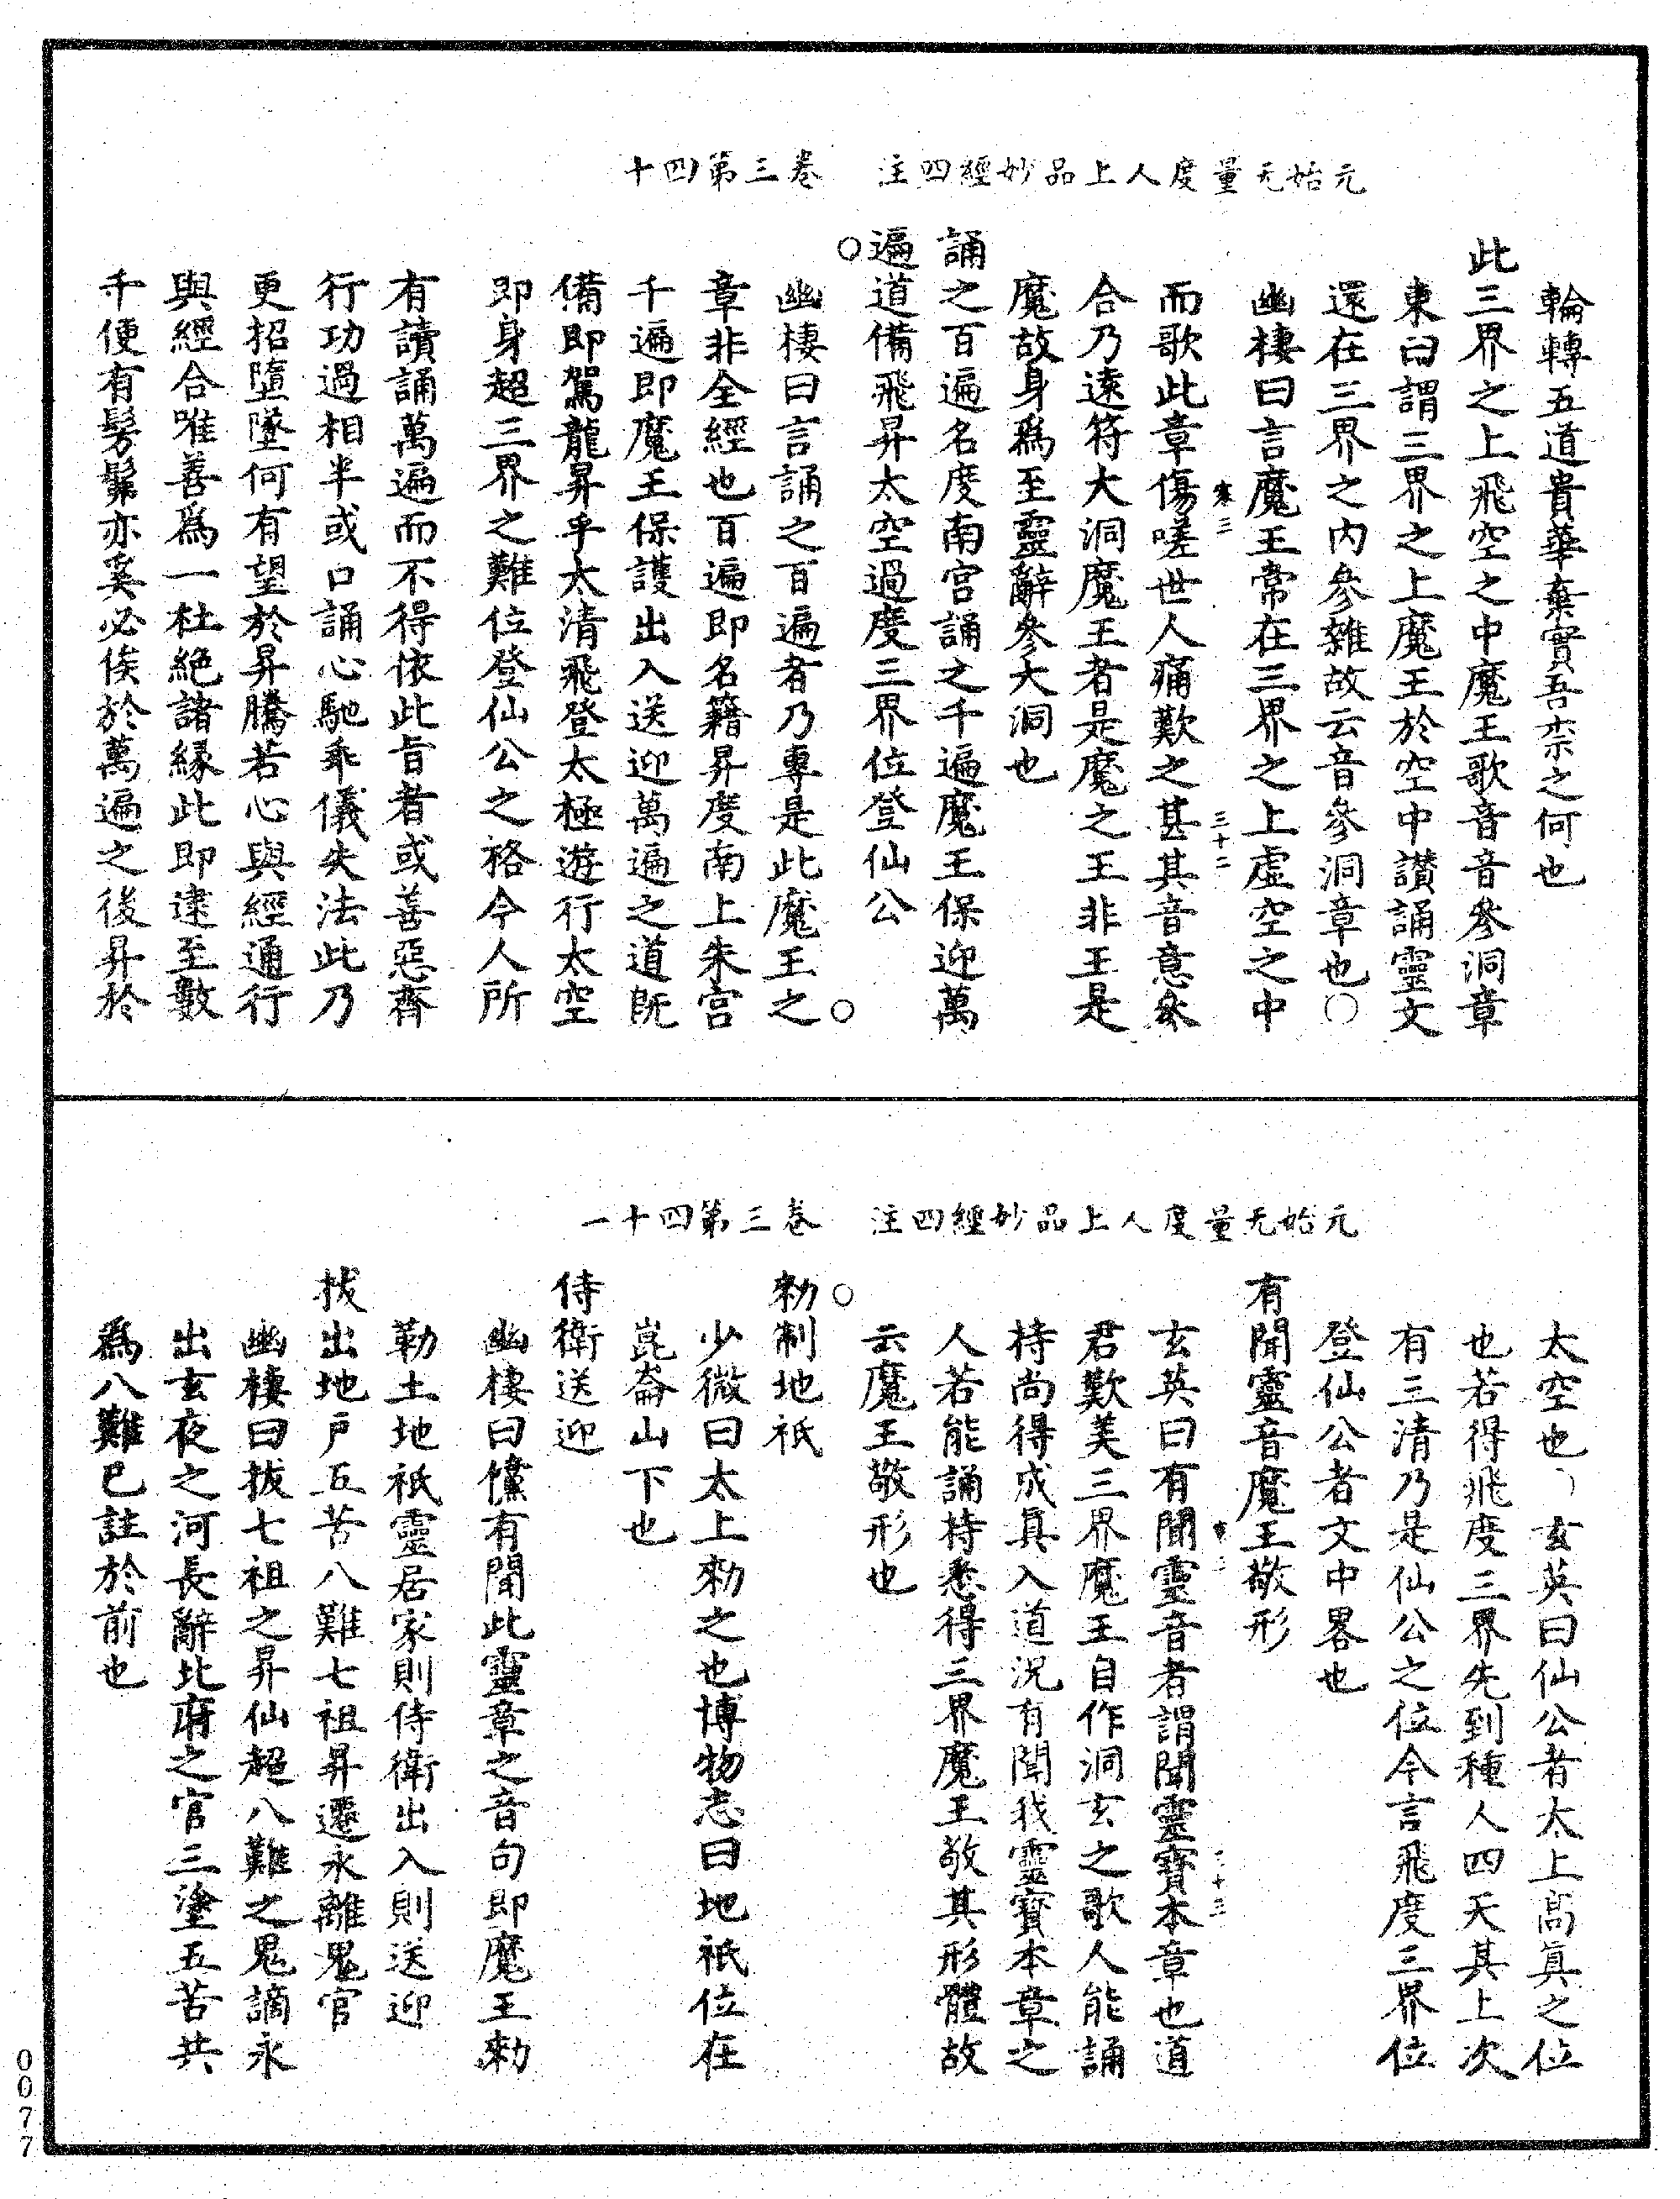 元始无量度人上品妙經四注　卷三第四十
輪轉五道貴華棄實吾柰之何也
此三界之上飛空之中魔王歌音音參洞章
東曰謂三界之上魔王於空中讃誦靈文
還在三界之內參雜故云音參洞章也○
幽棲曰言魔王常在三界之上虛空之中
寒三　三十二
而歌此章傷嗟世人痛歎之甚其音意參
合乃遠符大洞魔王者是魔之王非王是
魔故身爲至靈辭參大洞也
誦之百遍名度南宮誦之千遍魔王保迎萬
遍道備飛昇太空過度三界位登仙公
○　○
幽棲曰言誦之百遍者乃專是此魔王之
章非全經也百遍即名籍昇度南上朱宮
千遍即魔王保護出入送迎萬遍之道旣
備即駕龍昇乎太清飛登太極遊行太空
即身超三界之難位登仙公之格今人所
有讀誦萬遍而不得依此旨者或善惡齊
行功過相半或口誦心馳乖儀失法此乃
更招墮墜何有望於昇騰若心與經通行
與經合唯善爲一杜絶諸緣此即逮至數
千便有髣髴亦奚必俟於萬遍之後昇於
元始无量度人上品妙經四注　卷三第四十一
太空也　玄英曰仙公者太上高真之位
也若得飛度三界先到種人四天其上次
有三清乃是仙公之位今言飛度三界位
登仙公者文中畧也
有聞靈音魔王敬形
三十三
玄英曰有聞靈音者謂聞靈寶本章也道
君歎美三界魔王自作洞玄之歌人能誦
持尚得成真入道況有聞我靈寶本章之
人若能誦持悉得三界魔王敬其形體故
云魔王敬形也
○
勑制地祇
少微曰太上勑之也博物志曰地祇位在
崑崙山下也
侍衛送迎
幽棲曰儻有聞此靈章之音句即魔王勑
勒土地祇靈居家則侍衛出入則送迎
拔出地戶五苦八難七祖昇遷永離鬼官
幽棲曰拔七祖之昇仙超八難之鬼謫永
出玄夜之河長辭北府之官三塗五苦共
爲八難已註於前也
0077